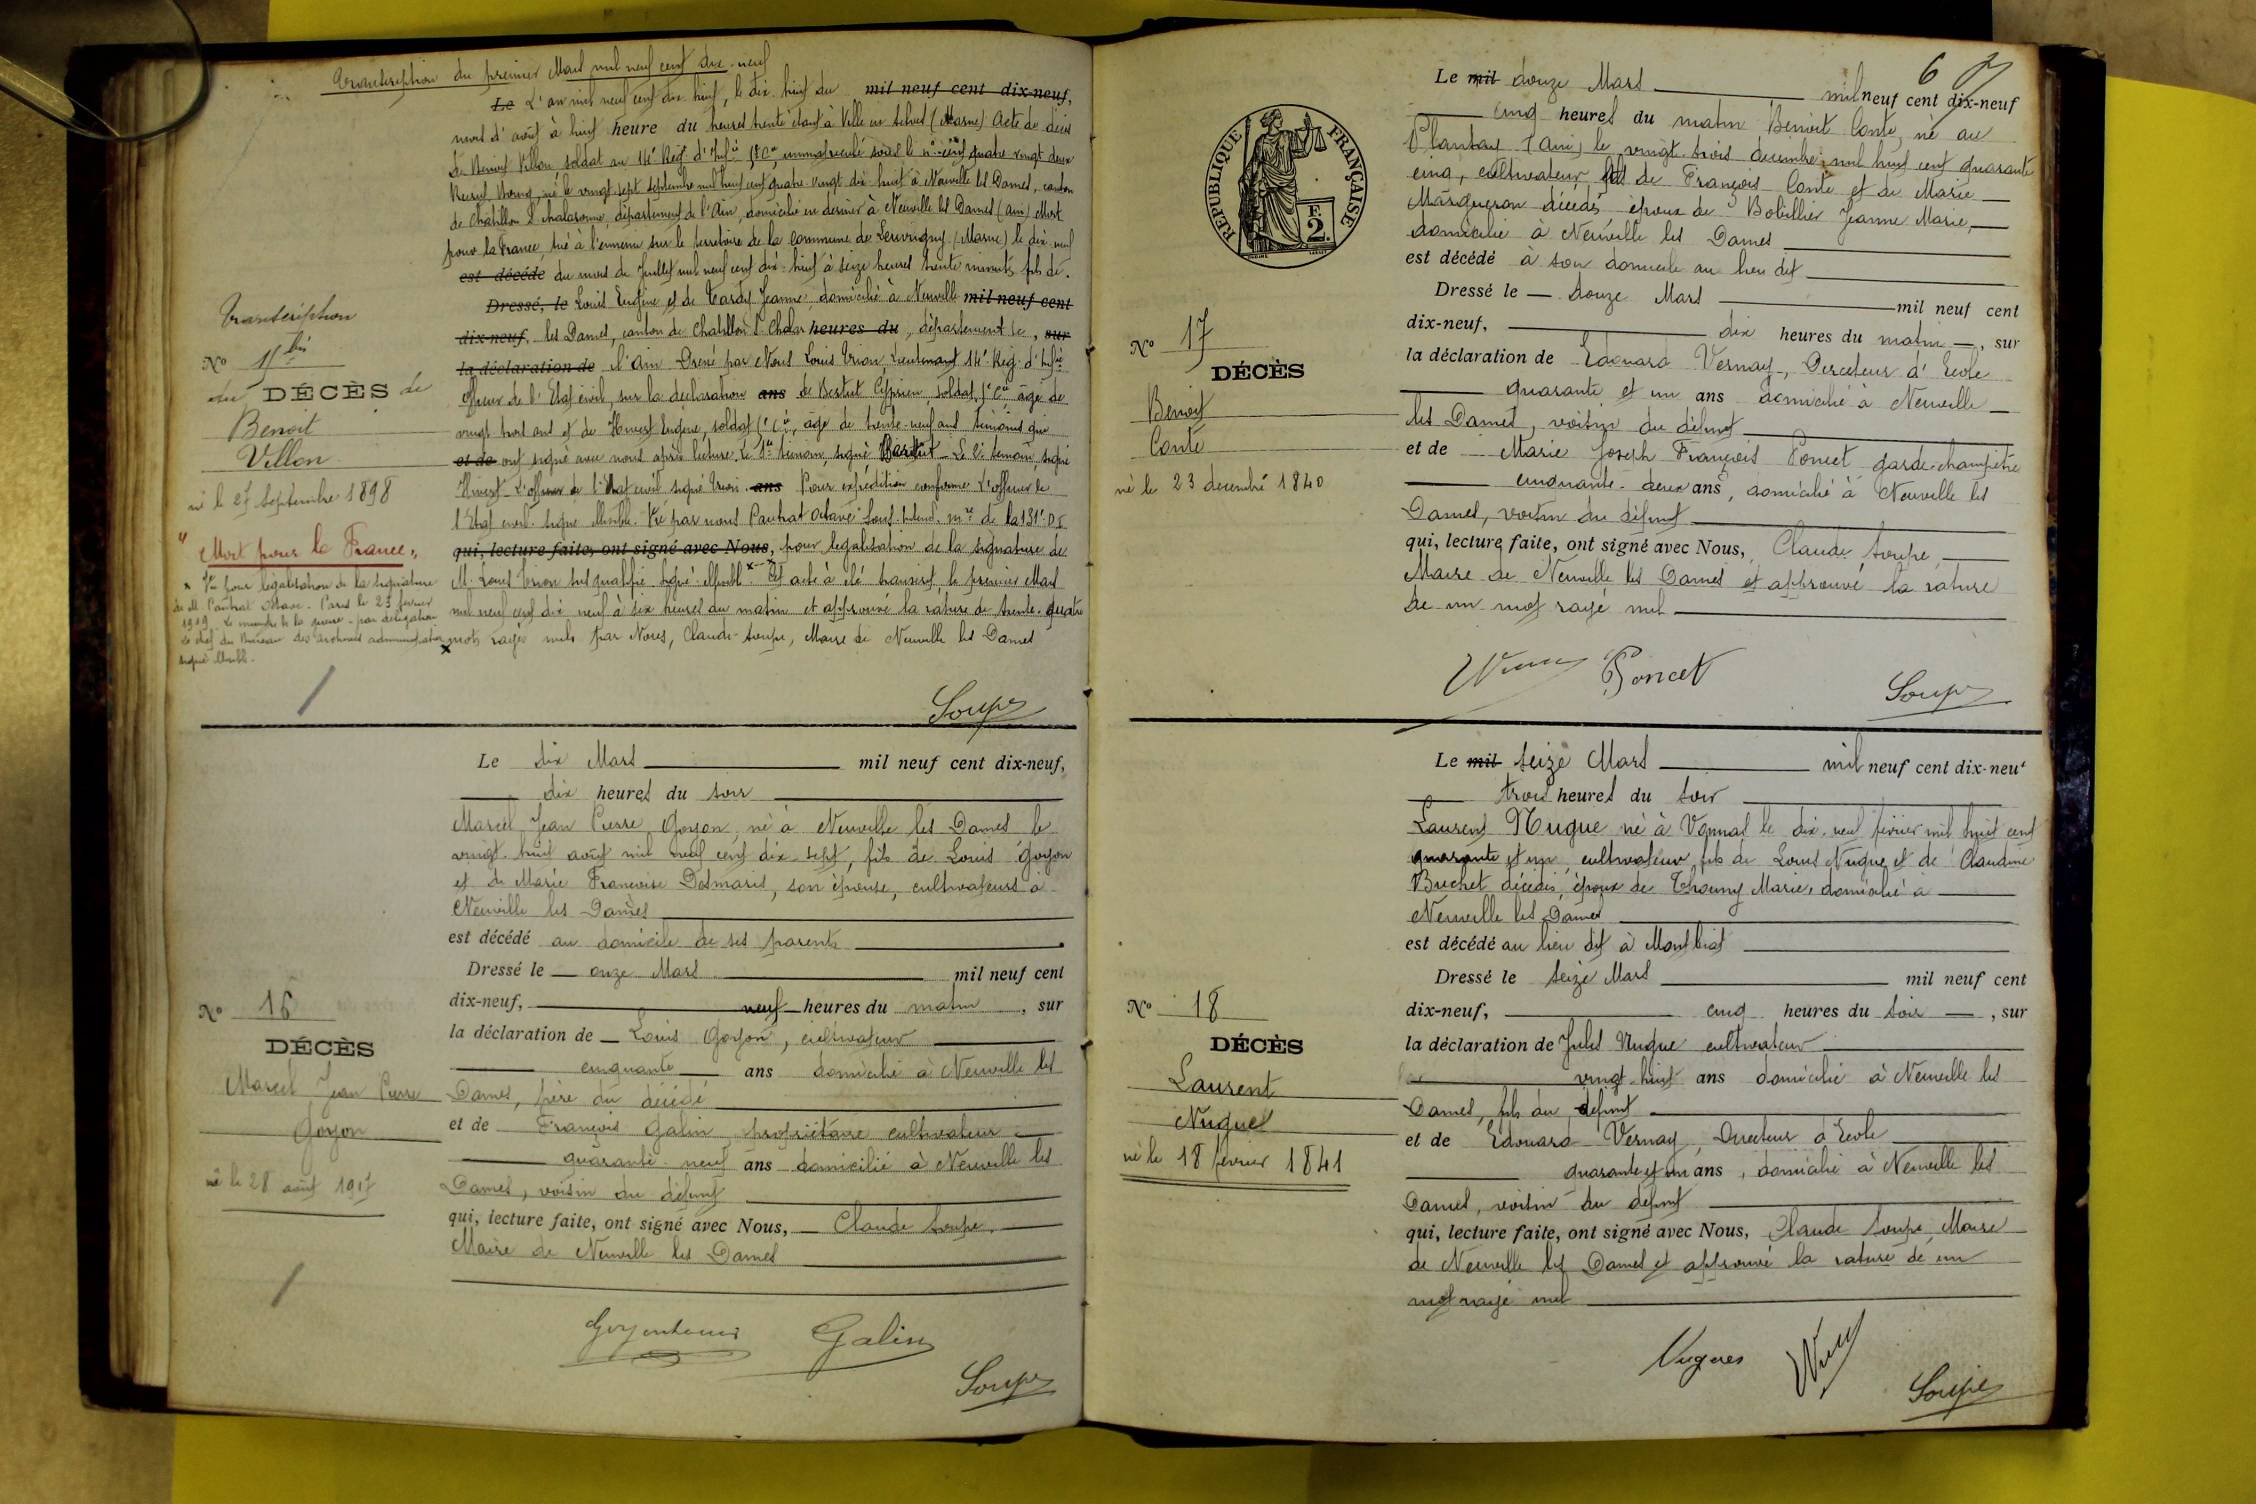 Transcription du premier Mars mil neuf cent dix-neuf
Le L'an mil neuf cent dix huit, le dix huit du mil neuf cent dix-neuf,
mois d'août à huit heure du heures trente étant à Ville en Selves (Marne) Acte de décès
de Benoit Villon, soldat au 14e Rég. d'Infie 1e Cie, immatriculé sous le n° cent quatre vingt deux
né le vingt sept septembre mil huit cent quatre vingt dix huit à Neuville les Dames, canton
de Chatillon s. Chalaronne, département de l'Ain, domicilié en dernier à Neuville les Dames (Ain) Mort
pour la France, tué à l'ennemi sur le territoire de la commune de Leuvrigny (Marne) le dix neuf
est décédé du mois de Juillet mil neuf cent dix-huit à seize heures trente minutes, fils de
Dressé, le Louis Eugène et de Tardy Jeanne, domicilié à Neuville mil neuf cent
dix-neuf, les Dames, canton de Chatillon s. Chalar heures du, département de, sur
la déclaration de l'Ain Dressé par Nous Louis Vrion, Lieutenant 14e Rég. d'Infie
Officier de l'Etat civil, sur la déclaration ans de Bestut Cyprien soldat 1e Cie, âgé de
vingt trois ans et de Hivest Eugène, soldat 1e Cie, âgé de trente-neuf ans témoins qui
et de ont signé avec nous après lecture. Le 1er témoin, signé Le 2e témoin, signé
Hivest L'officier de l'Etat civil signé Vrion. ans Pour expédition conforme L'officier de
l'Etat civil. signé illisible. Vu par nous Pautrat Octave Sous-Intend. mre de la 131e D.I
qui, lecture faite, ont signé avec Nous, pour légalisation de la signature de
M. Louis Vrion susqualifié signé illisible x--x Cet acte à été transcrit le premier Mars
mil neuf cent dix neuf à dix heures du matin et approuvé la rature de trente-quatre
mots rayés nuls par Nous, Claude Soupe, Maire de Neuville les Dames
Soupe
Transcription
No 15 bis
du DÉCÈS de
Benoit
Villon
né le 27 septembre 1898
"Mort pour la France"
x Vu pour légalisation de la signature
de M. Pautrat Octave. Paris le 23 février
1919. Le ministre de la guerre - par délégation
Le chef du Bureau des archives administratives
signé illisible.
Le dix Mars mil neuf cent dix-neuf,
dix heures du soir
Marcel Jean Pierre Goyon, né à Neuville les Dames le
vingt-huit août mil neuf cent dix-sept, fils de Louis Goyon
et de Marie Françoise Desmaris, son épouse, cultivateurs à
Neuville les Dames
est décédé au domicile de ses parents
Dressé le onze Mars mil neuf cent
dix-neuf, neuf heures du matin, sur
la déclaration de Louis Goyon, cultivateur
cinquante ans domicilié à Neuville les
Dames, père du décédé
et de François Galin, propriétaire cultivateur
quarante-neuf ans domicilié à Neuville les
Dames, voisin du défunt
qui, lecture faite, ont signé avec Nous, Claude Soupe,
Maire de Neuville les Dames
Galin
Soupe
No 16
DÉCÈS
Marcel Jean Pierre
Goyon
né le 28 août 1917
6
REPUBLIQUE FRANÇAISE
F. 2.
Le mil douze Mars mil neuf cent dix-neuf
cinq heures du matin Benoit Conte, né au
Plantay (Ain) le vingt-trois décembre mil huit cent quarante
cinq, cultivateur, fils de François Conte et de Marie
Margueron décédés, époux de Bobillier Jeanne Marie,
domicilié à Neuville les Dames
est décédé à son domicile au lieu dit
Dressé le douze Mars mil neuf cent
dix-neuf, dix heures du matin, sur
la déclaration de Edouard Vernay, Directeur d'Ecole
quarante et un ans domicilié à Neuville
les Dames, voisin du défunt
et de Marie Joseph François Poncet garde-champêtre
cinquante-deux ans, domicilié à Neuville les
Dames, voisin du défunt
qui, lecture faite, ont signé avec Nous, Claude Soupe,
Maire de Neuville les Dames et approuvé la rature
de un mot rayé nul
Poncet
Soupe
No 17
DÉCÈS
Benoit
Conte
né le 23 décembre 1840
Le mil seize Mars mil neuf cent dix-neuf
trois heures du soir
Laurent Nugue né à Vonnas le dix-neuf février mil huit cent
quarante et un, cultivateur, fils de Louis Nugue et de Claudine
Buchet décédés, époux de Thouny Marie, domicilié à
Neuville les Dames
est décédé au lieu dit à Montbiat
Dressé le seize Mars mil neuf cent
dix-neuf, cinq heures du soir, sur
la déclaration de Jules Nugue cultivateur
vingt-huit ans domicilié à Neuville les
Dames, fils du défunt
et de Edouard Vernay, Directeur d'Ecole
quarante et un ans, domicilié à Neuville les
Dames, voisin du défunt
qui, lecture faite, ont signé avec Nous, Claude Soupe, Maire
de Neuville les Dames et approuvé la rature de un
mot rayé nul
Nugues
Soupe
No 18
DÉCÈS
Laurent
Nugue
né le 18 février 1841